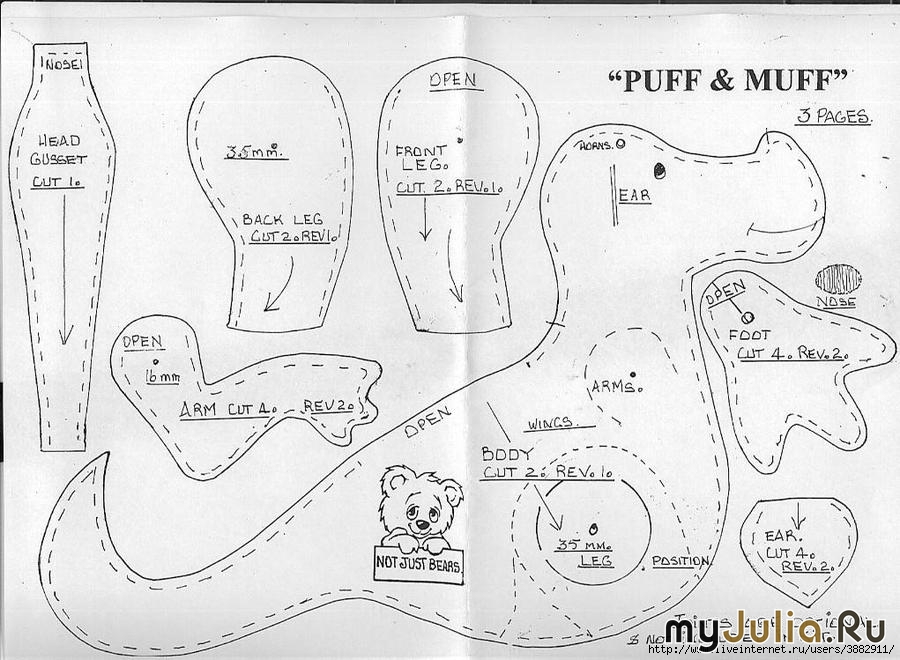 "PUFF & MUFF"
3 PAGES.
NOSE
HEAD
GUSSET
CUT 1.
35mm.
BACK LEG
CUT 2. REV 1.
OPEN
FRONT
LEG.
CUT. 2. REV. 1.
HORNS.
EAR
NOSE
OPEN
FOOT
CUT 4. REV. 2.
OPEN
16mm
ARM CUT 4. REV 2.
OPEN
ARMS.
WINGS.
BODY
CUT 2. REV. 1.
35 MM.
LEG
POSITION
NOT JUST BEARS.
EAR.
CUT 4.
REV. 2.
myJulia.Ru